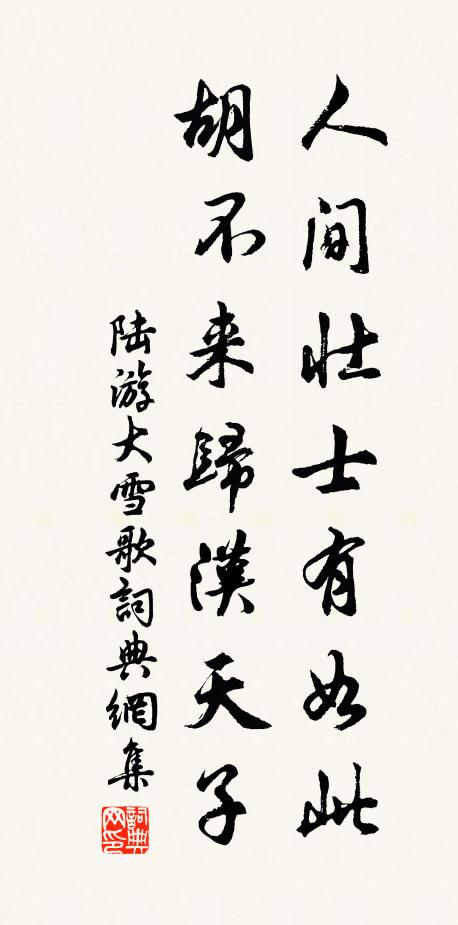 人间壮士有如此
胡不来歸漢天子
陆游大雪歌詞典網集
詞典网印